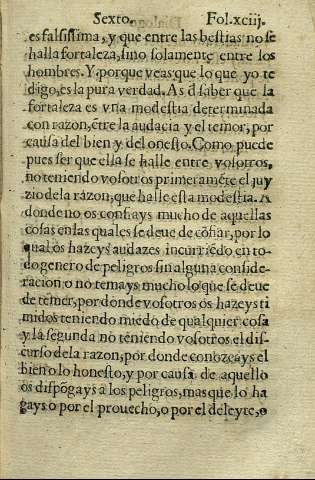 Sexto. Fol.xciij.
es falsissima, y que entre las bestias no se
halla fortaleza, sino solamente entre los
hombres. Y porque veas que lo que yo te
digo, es la pura verdad. As đ saber que la
fortaleza es vna modestia determinada
con razon, ẽtre la audacia y el temor, por
causa del bien y del onesto. Como puede
pues ser que ella se halle entre vosotros,
no teniendo vosotros primeramẽte el juy
zio dela razon, que halle esta modestia. A
donde no os confiays mucho de aquellas
cosas en las quales se deue de cõfiar, por lo
qual os hazeys audazes incurriẽdo en to-
do genero de peligros sin alguna conside-
racion o no temays mucho lo que se deue
de temer, por donde vosotros os hazeys ti
midos teniendo miedo de qualquier cosa
y la segunda no teniendo vosotros el dis-
curso dela razon, por donde conozcays el
bien o lo honesto, y por causa de aquello
os dispõgays a los peligros, mas que lo ha
gays o por el prouecho, o por el deleyte, o